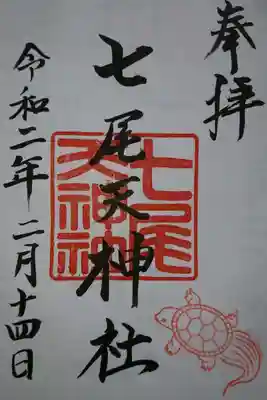 奉拝
七尾天神社
令和二年二月十四日